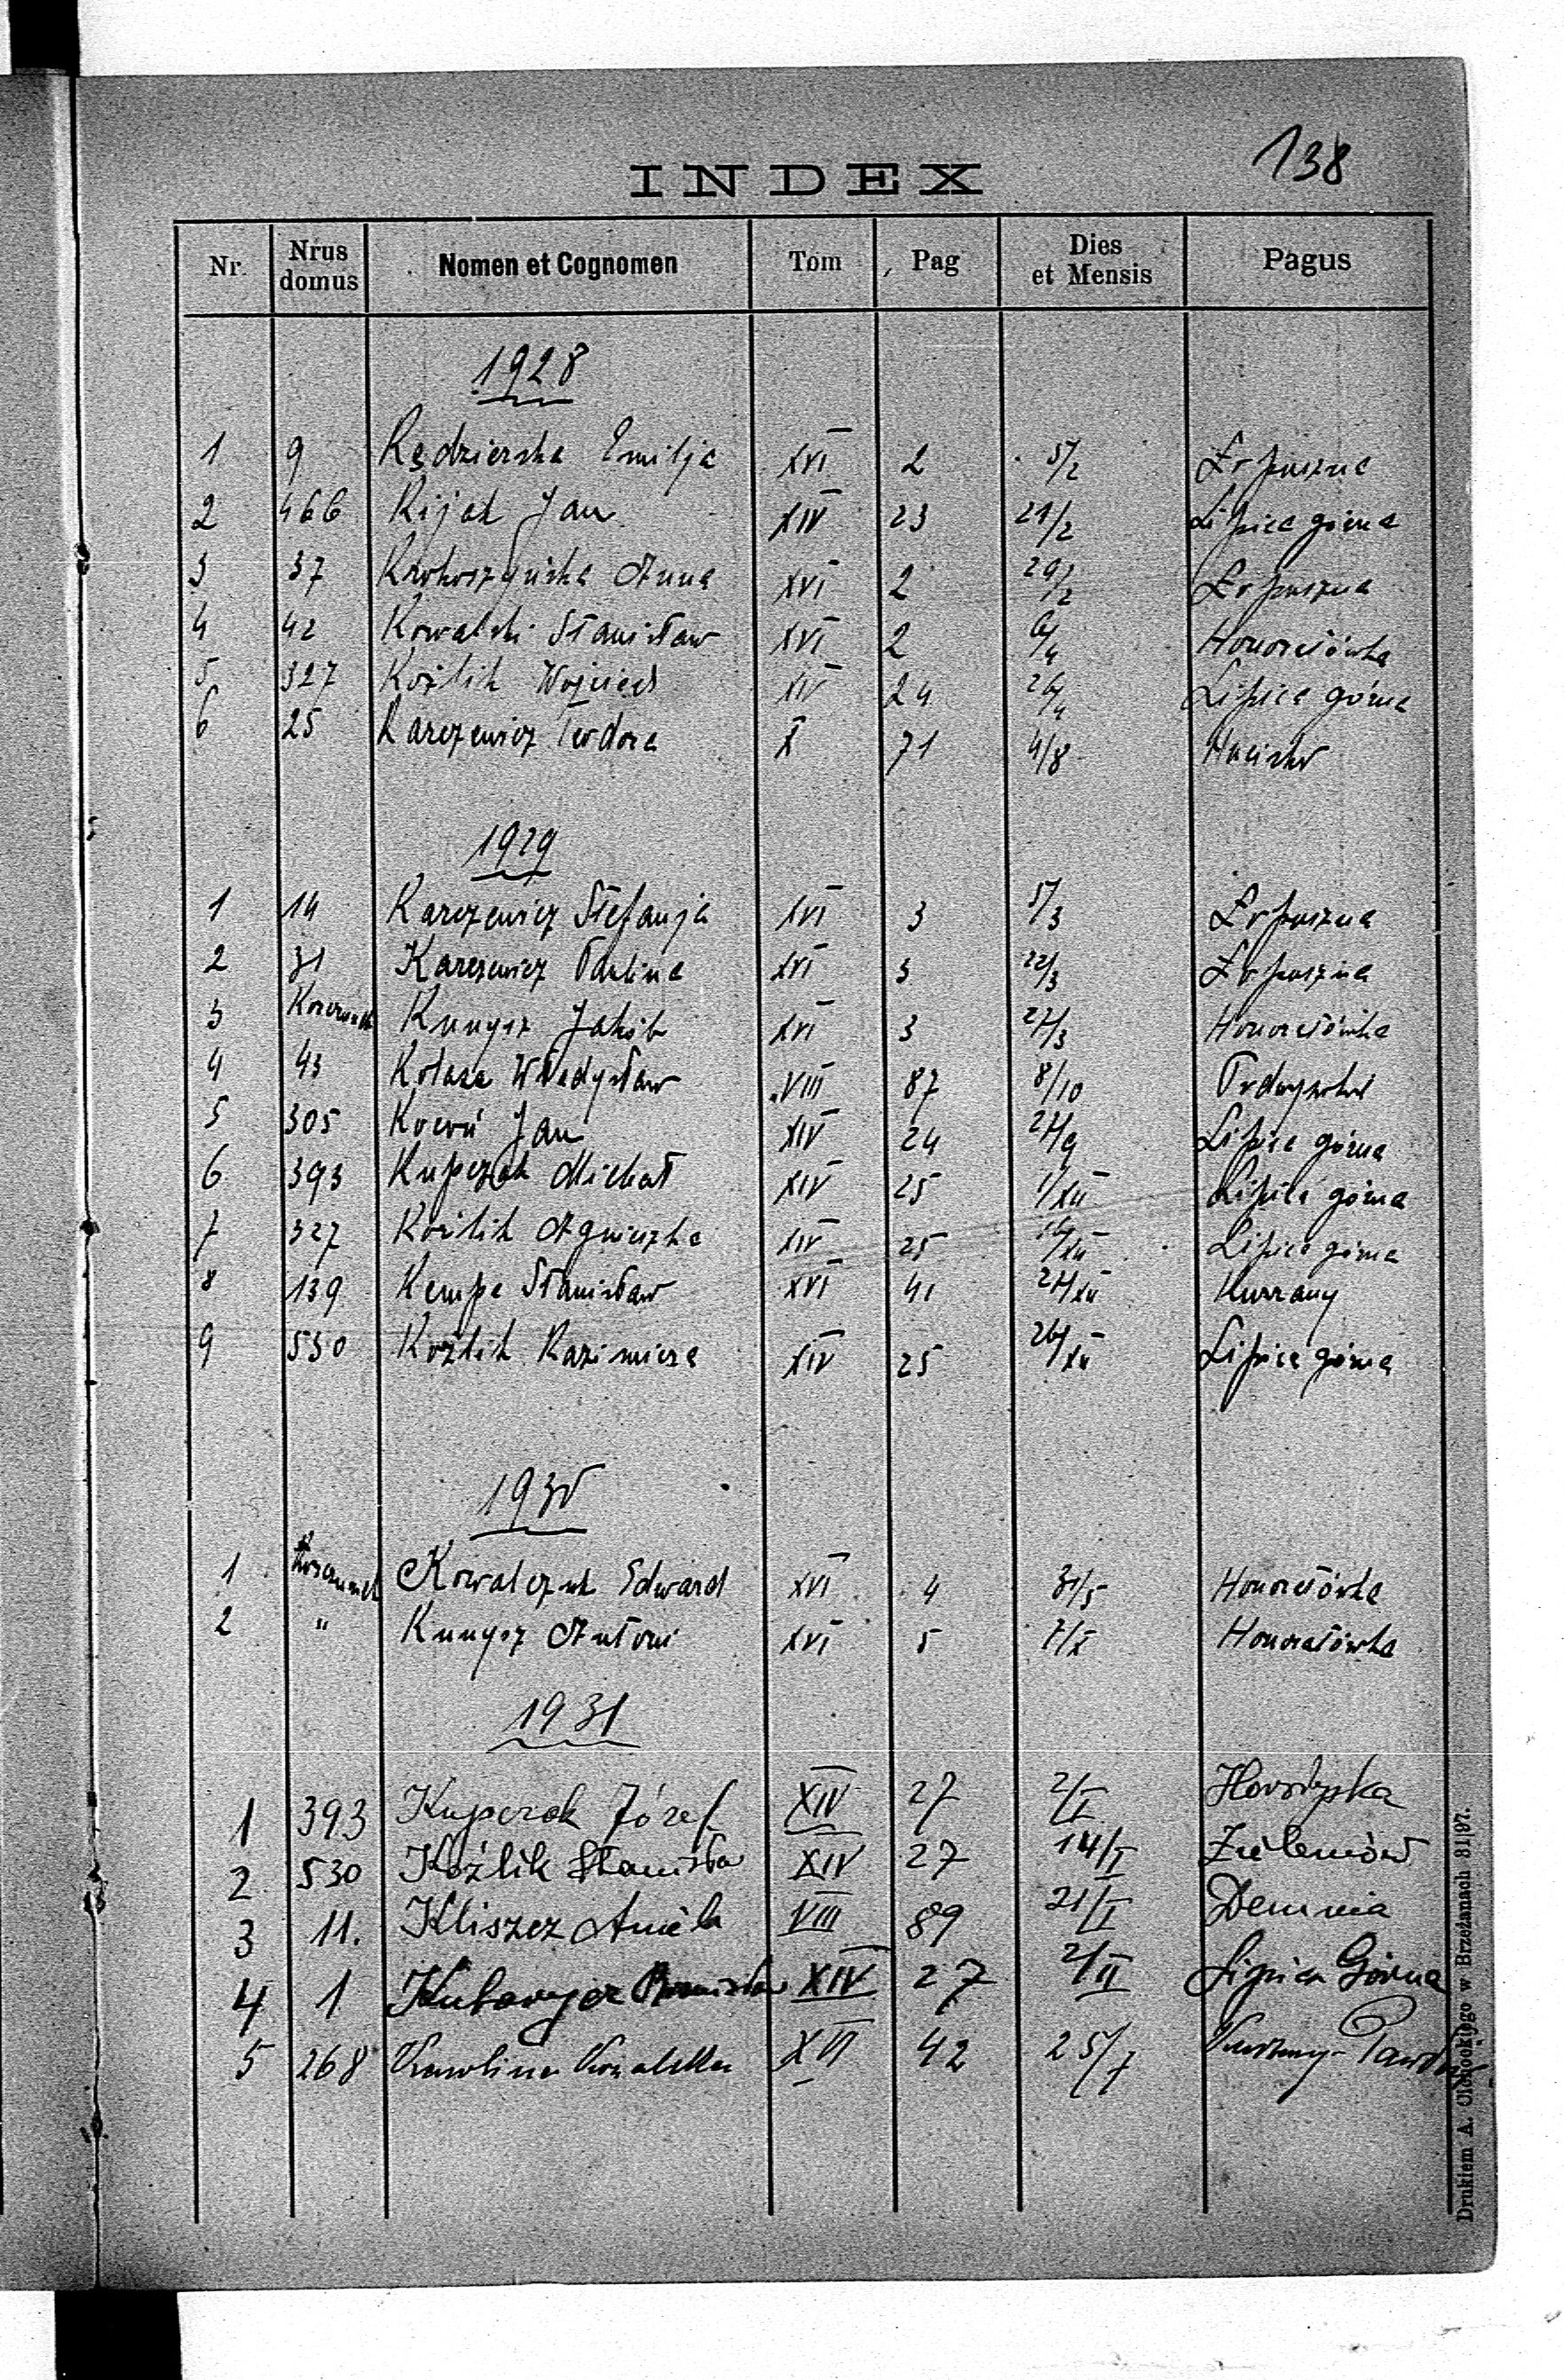 138
INDEX
Nr. Nrus domus Nomen et Cognomen Tom Pag Dies et Mensis Pagus
1928
1 9 Kędzierska Emilja XVI 2 5/2 Łopuszna
2 466 Kijak Jan XIV 23 21/2 Lipica górna
3 37 Krohoszyńska Anna XVI 2 29/2 Łopuszna
4 42 Kowalski Stanisław XVI 2 /4 Honoratówka
5 327 Koźlik Wojciech XIV 24 26/4 Lipica górna
6 25 Karczewicz Teodora X 71 4/8
1929
1 14 Karczewicz Stefanja XVI 3 5/3 Łopuszna
2 31 Karczewicz Paulina XVI 3 22/3 Łopuszna
3 Kunysz Jakób XVI 3 27/3 Honoratówka
4 43 Kolasa Władysław VIII 87 8/10
5 305 Kocoń Jan XIV 24 27/9 Lipica górna
6 393 Kupczak Michał XIV 25 1/XII Lipica górna
7 327 Koźlik Agnieszka XIV 25 /XII Lipica górna
8 139 Kempa Stanisław XVI 41 27/XII Kurzany
9 530 Koźlik Kazimiera XIV 25 26/XII Lipica górna
1930
1 Kowalczuk Edward XVI 4 31/5 Honoratówka
2 " Kunysz Antoni XVI 5 7/X Honoratówka
1931
1 393 Kupczak Józef XIV 27 2/I
2 530 Koźlik Stanisław XIV 27 14/I Zieleniów
3 11. Kliszcz Aniela VIII 89 21/I Demnia
4 1 Bronisław XIV 27 2/II Lipica Górna
5 268 Karolina Kowalska XVI 42 25/7 Kurzany-
Drukiem A. w Brzeżanach 81/97.